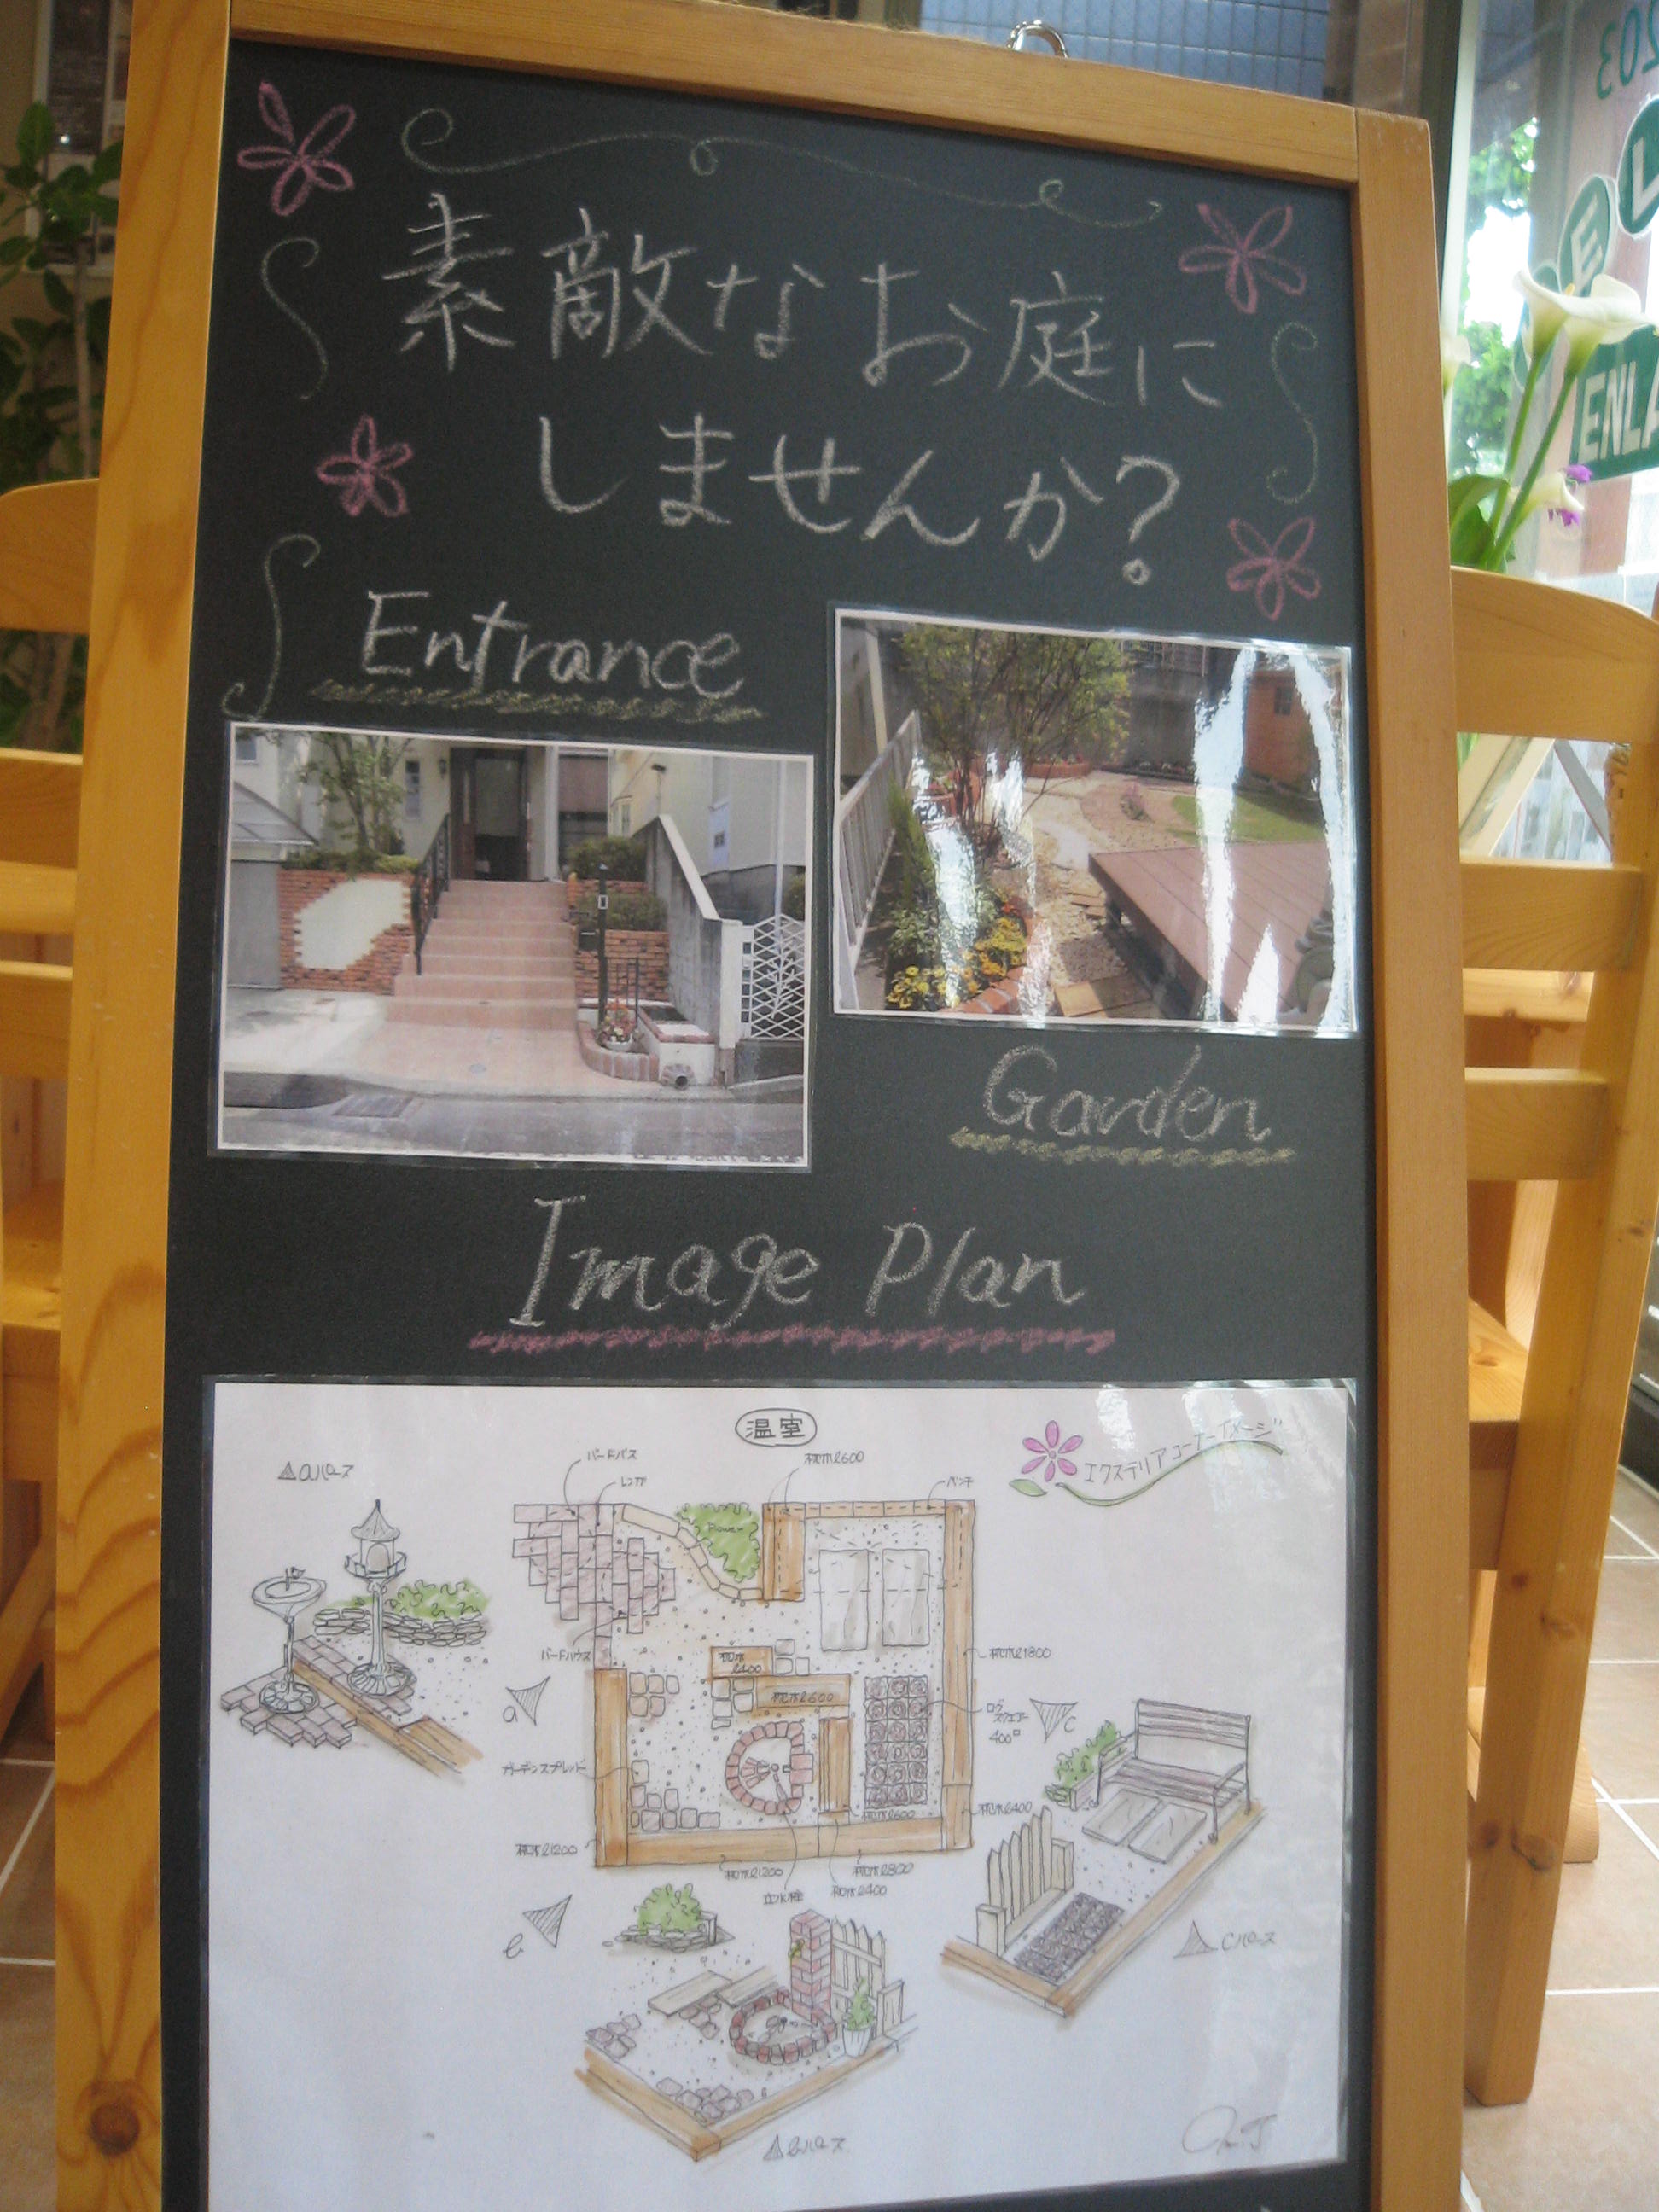 素敵なお庭に
しませんか?
Entrance
Garden
Image Plan
温室
エクステリアコーナーイメージ
△aパース
バードバス
レンガ
枕木l600
ベンチ
Flower
バードハウス
枕木
l400
枕木l600
枕木l1800
a
c
400□
枕木l600
枕木l400
枕木l1200
枕木l1200
枕木l800
立水栓
枕木l400
△cパース
203
E
L
ENLA